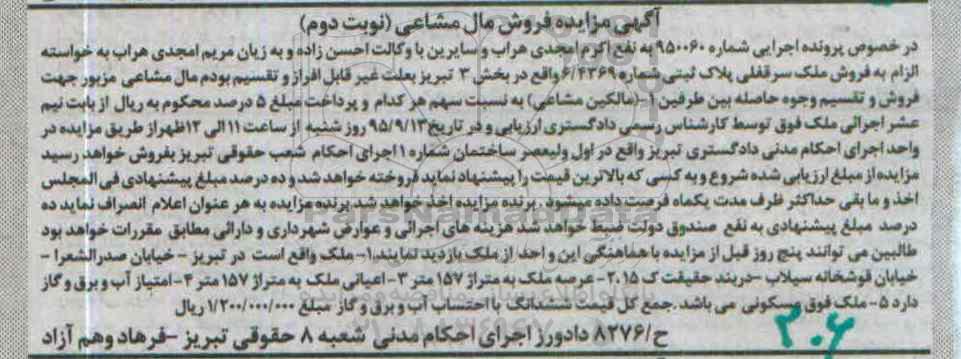 آگهی مزایده فروش مال مشاعی (نوبت دوم)
در خصوص پرونده اجرایی شماره ۹۵۰۰۶۰ به نفع اکرم امجدی هراب و سایرین با وکالت احسن زاده و به زیان مریم امجدی هراب به خواسته
الزام به فروش ملک سرقفلی پلاک ثبتی شماره ۶/۴۳۶۹ واقع در بخش ۳ تبریز بعلت غیر قابل افراز و تقسیم بودم مال مشاعی مزبور جهت
فروش و تقسیم وجوه حاصله بین طرفین ۱-(مالکین مشاعی) به نسبت سهم هر کدام و پرداخت مبلغ ۵ درصد محکوم به ریال از بابت نیم
عشر اجرائی ملک فوق توسط کارشناس رسمی دادگستری ارزیابی و در تاریخ ۹۵/۹/۱۳ روز شنبه از ساعت ۱۱ الی ۱۲ ظهر از طریق مزایده در
واحد اجرای احکام مدنی دادگستری تبریز واقع در اول ولیعصر ساختمان شماره ۱ اجرای احکام شعب حقوقی تبریز بفروش خواهد رسید
مزایده از مبلغ ارزیابی شده شروع و به کسی که بالاترین قیمت را پیشنهاد نماید فروخته خواهد شد و ده درصد مبلغ پیشنهادی فی المجلس
اخذ و ما بقی حداکثر ظرف مدت یکماه فرصت داده میشود . برنده مزایده اخذ خواهد شد برنده مزایده به هر عنوان اعلام انصراف نماید ده
درصد مبلغ پیشنهادی به نفع صندوق دولت ضبط خواهد شد هزینه های اجرائی و عوارض شهرداری و دارائی مطابق مقررات خواهد بود
طالبین می توانند پنج روز قبل از مزایده با هماهنگی این واحد از ملک بازدید نمایند.۱- ملک واقع است در تبریز - خیابان صدرالشعرا -
خیابان قوشخانه سیلاب -دربند حقیقت ک ۲.۱۵- عرصه ملک به متراژ ۱۵۷ متر ۳- اعیانی ملک به متراژ ۱۵۷ متر ۴- امتیاز آب و برق و گاز
دارد ۵- ملک فوق مسکونی می باشد .جمع کل قیمت ششدانگ با احتساب آب و برق و گاز مبلغ ۱/۲۰۰/۰۰۰/۰۰۰ ریال
ح/۸۲۷۶ دادورز اجرای احکام مدنی شعبه ۸ حقوقی تبریز -فرهاد وهم آزاد
ParsNamadData